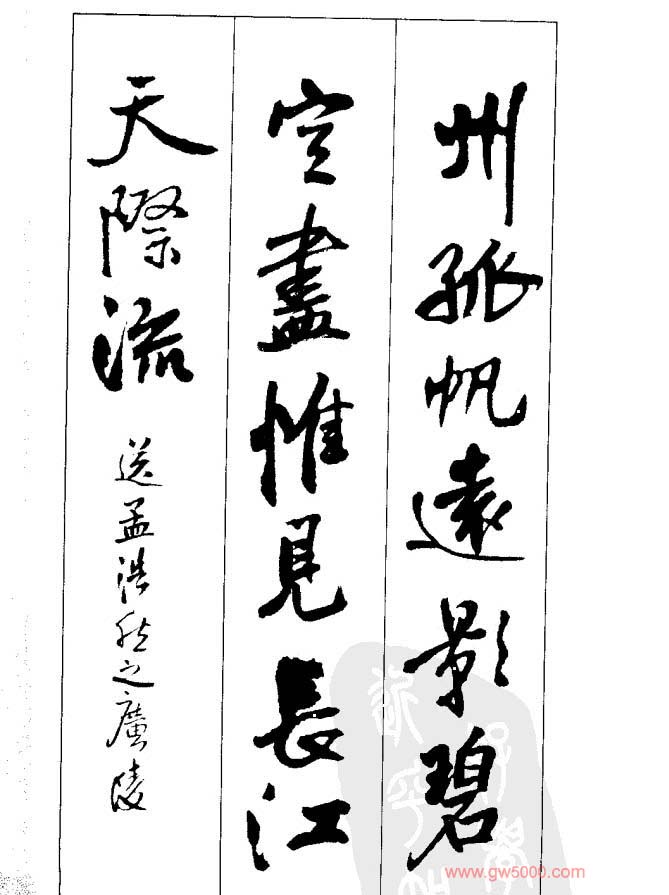 州孤帆遠影碧
空盡惟見長江
天際流
送孟浩然之廣陵
www.gw5000.com